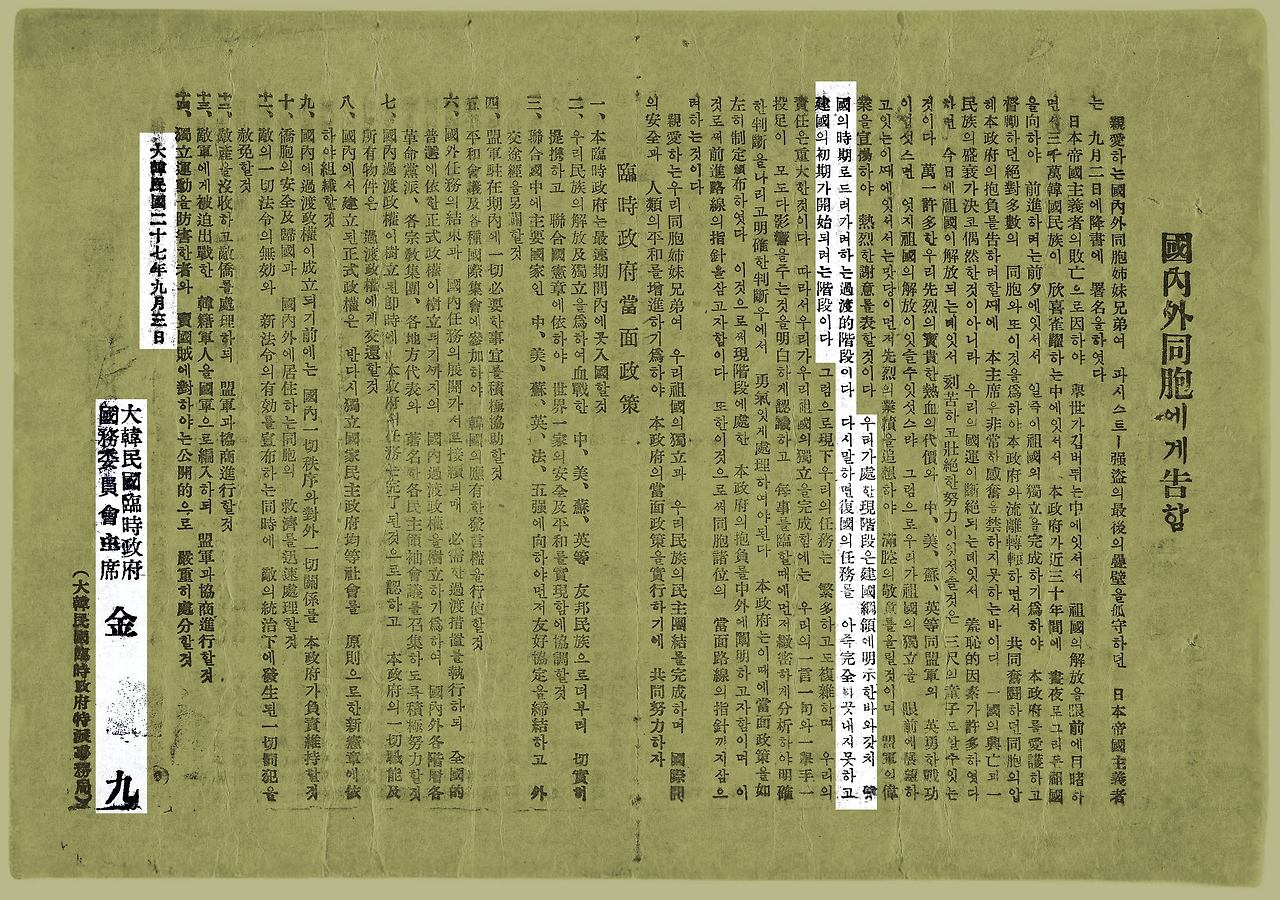 國內外同胞에게告함
親愛하는國內外同胞姉妹兄弟여 파시스트ー强盜의最後의壘壁을低守하던 日本帝國主義者
는 九月二日에降書에 署名을하엿다
日本帝國主義者의敗亡으로因하야 擧世가김버뛰는中에잇서서 祖國의解放을眼前에目睹하
면서三千萬韓國民族이 欣喜雀躍하는中에잇서서 本政府가近三十年間에 晝夜로그리든祖國
을向하야 前進하려하는前夕에잇서서 일즉이祖國의獨立을完成하기爲하야 本政府를愛護하고
督勵하던絕對多數의 同胞와또이것을爲하야本政府와流離轉轉하면서 共同奮鬪하던同胞의압
헤本政府의抱負를告하려할때에 本主席은非常한感奮을禁하지못하는바이다 一國의興亡과一
民族의盛衰가決코偶然한것이아니라 우리의國運이斷絕되는데잇서 羞恥的因素가許多하엿다
하면 今日에祖國이解放되는데잇서 刻苦하고壯絕한努力이잇섯슬것은 三尺의童子도알수잇는
것이다 萬一許多한우리先烈의寶貴한熱血의代價와 中、美、蘇、英等同盟軍의 英勇한戰功
이업섯스면 엇지祖國의解放이잇슬수잇섯스랴 그럼으로우리가祖國의獨立을 眼前에展望하
고잇는이때에잇서서는맛당이먼저先烈의業績을追想하야 滿腔의敬意를올릴것이며 盟軍의偉
業을宣揚하야 熱烈한謝意를表할것이다 우리가處한現階段은建國綱領에明示한바와갓치 建
國의時期로드러가려하는過渡的階段이다 다시말하면復國의任務를 아즉完全히끗내지못하고
建國의初期가開始되려는階段이다 그럼으로現下우리의任務는 繁多하고도複雜하며 우리의
責任은重大한것이다 따라서우리가우리祖國의獨立을完成함에는 우리의一言一句와一擧手一
投足이 모도다影響을주는것을明白하게認識하고 每事를臨할때에먼저緻密하게分析하야明確
한判斷을나리고明確한判斷우에서 勇氣잇게處理하여야된다 本政府는이때에當面政策을如
左히制定頒布하엿다 이것으로써現階段에處한 本政府의抱負를中外에闡明하고자함이며 이
것으로써前進路線의指針을삼고자함이다 또한이것으로써同胞諸位의 當面路線의指針까지삼으
려하는것이다
親愛하는우리同胞姉妹兄弟여 우리祖國의獨立과 우리民族의民主團結을完成하며 國際間
의安全과 人類의平和를增進하기爲하야 本政府의當面政策을實行하기에 共同努力하자
臨時政府當面政策
一、本臨時政府는最速期間內에곳入國할것
二、우리民族의解放及獨立을爲하여血戰한 中、美、蘇、英等 友邦民族으로더부러 切實히
提携하고 聯合國憲章에依하야 世界一家의安全及平和를實現함에協調할것
三、聯合國中에主要國家인 中、美、蘇、英、法、五强에向하야먼저友好協定을締結하고 外
交途經을另闢할것
四、盟軍駐在期內에一切必要한事宜를積極協助할것
五、平和會議及各種國際集會에參加하야 韓國의應有한發言權을行使할것
六、國外任務의結束과 國內任務의展開가서로接續되매 必需한過渡措置를執行하되 全國的
普選에依한正式政權이樹立되기까지의 國內過渡政權을樹立하기爲하여 國內外各階層各
革命黨派、各宗敎集團、各地方代表와 著名한各民主領袖會議를召集하도록積極努力할것
七、國內過渡政權이樹立된卽時에本政府의任務는完了된것으로認하고 本政府의一切職能及
所有物件은 過渡政權에게交還할것
八、國內에서建立된正式政權은 반다시獨立國家民主政府均等社會를 原則으로한新憲章에依
하야組織할것
九、國內에過渡政權이成立되기前에는 國內一切秩序와對外一切關係를 本政府가負責維持할것
十、僑胞의安全及歸國과 國內外에居住하는同胞의 救濟를迅速處理할것
十一、敵의一切法令의無効와 新法令의有効를宣布하는同時에 敵의統治下에發生된一切罰犯을
赦免할것
十二、敵產을沒收하고敵僑를處理하되 盟軍과協商進行할것
十三、敵軍에게被迫出戰한 韓籍軍人을國軍으로編入하되 盟軍과協商進行할것
十四、獨立運動을妨害한者와 賣國賊에對하야는公開的으로 嚴重히處分할것
大韓民國二十七年九月三日
大韓民國臨時政府
國務委員會主席 金九
(大韓民國臨時政府特派事務局)